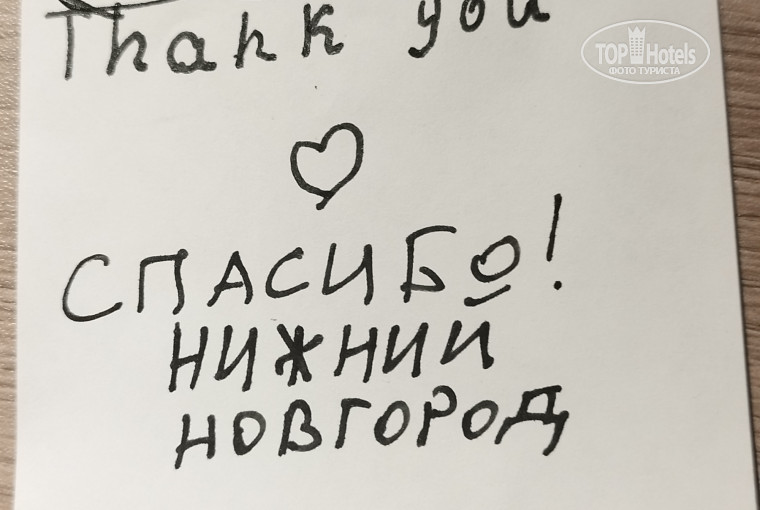 Thank you
СПАСИБО!
НИЖНИИ
НОВГОРОД
TOP Hotels
ФОТО ТУРИСТА